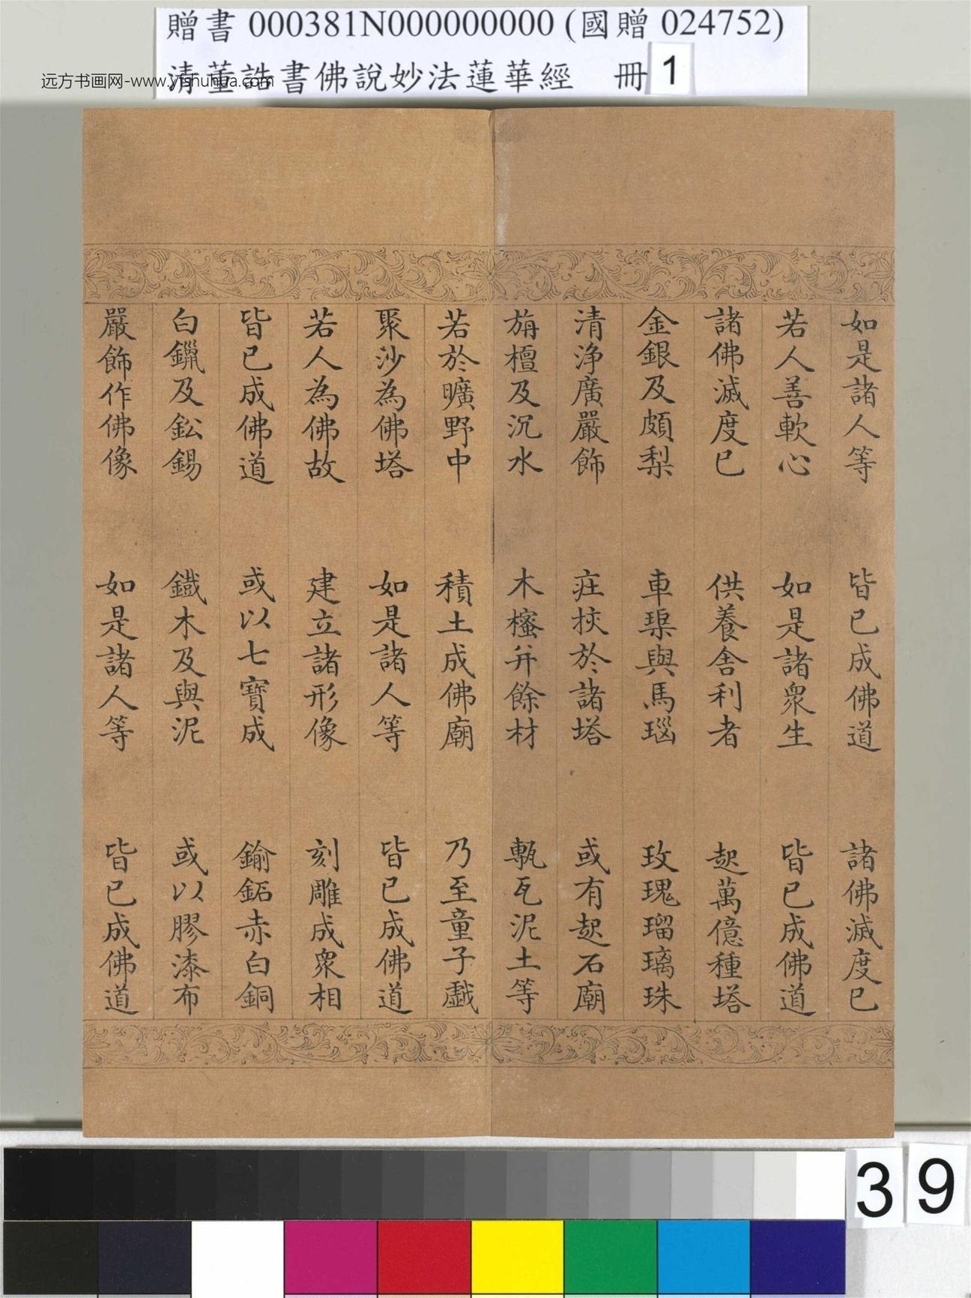 贈書 000381N000000000 (國贈 024752)
清董誥書佛說妙法蓮華經 冊 1
远方书画网-www.yfshuhua.com
如是諸人等 皆已成佛道 諸佛滅度已
若人善軟心 如是諸衆生 皆已成佛道
諸佛滅度已 供養舍利者 起萬億種塔
金銀及頗梨 車璖與馬瑙 玫瑰瑠璃珠
清淨廣嚴飾 莊挍於諸塔 或有起石廟
旃檀及沉水 木櫁并餘材 甎瓦泥土等
若於曠野中 積土成佛廟 乃至童子戲
聚沙為佛塔 如是諸人等 皆已成佛道
若人為佛故 建立諸形像 刻雕成衆相
皆已成佛道 或以七寶成 鍮鉐赤白銅
白鑞及鈆錫 鐵木及與泥 或以膠漆布
嚴飾作佛像 如是諸人等 皆已成佛道
39